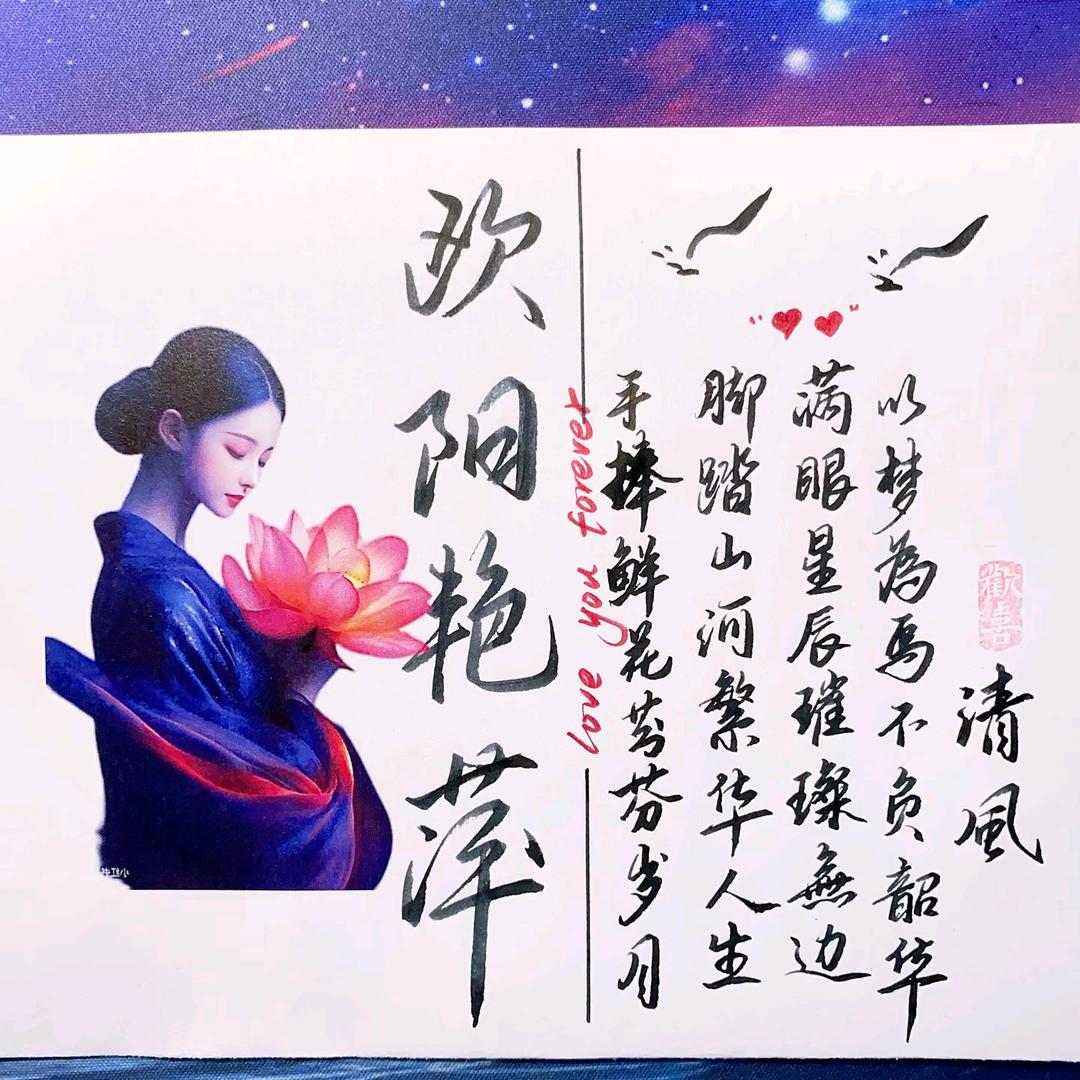 欧阳艳萍
love you forever
手捧鲜花芬芬岁月
脚踏山河繁华人生
满眼星辰璀璨無边
以梦為马不负韶华
歡喜
清風